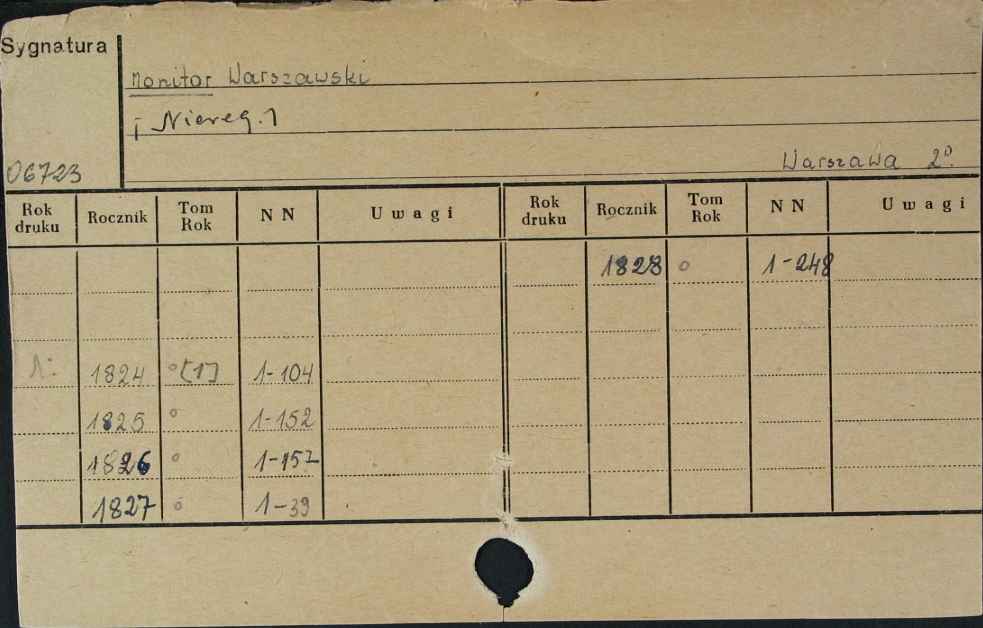 Sygnatura
Monitor Warszawski
[Niereg.]
Warszawa 2°.
06723
Rok druku Rocznik Tom Rok NN Uwagi Rok druku Rocznik Tom Rok NN Uwagi
1828 ° 1-248
1: 1824 °[1] 1-104
1825 ° 1-152
1826 ° 1-152
1827 ° 1-39